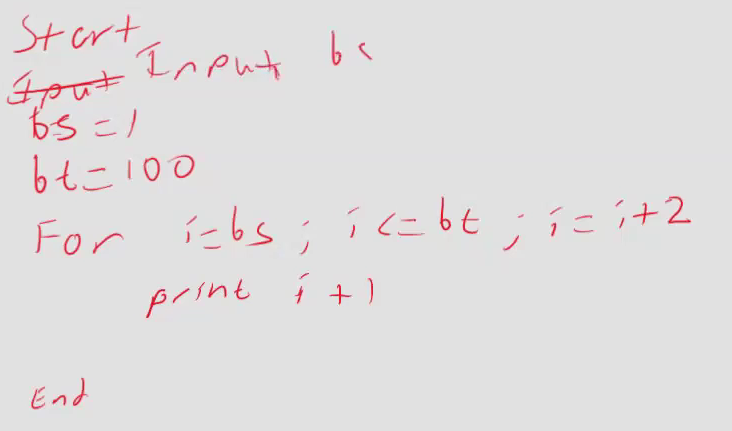 Start
Input
bs = 1
bt = 100
For i=bs ; i <= bt ; i = i+2
print i + 1
End